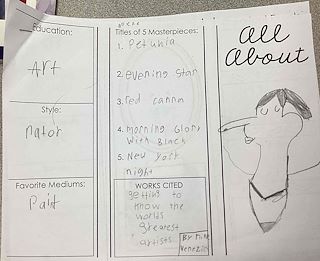 Education:
Art
Style:
nator
Favorite Mediums:
Paint
Titles of 5 Masterpieces:
1. Petunia
2. evening Star
3. red canna
4. morning Glory
with Black
5. New York
night
WORKS CITED
getting to
know the
worlds
greatest
artists
By Mike
Venezia
all
about